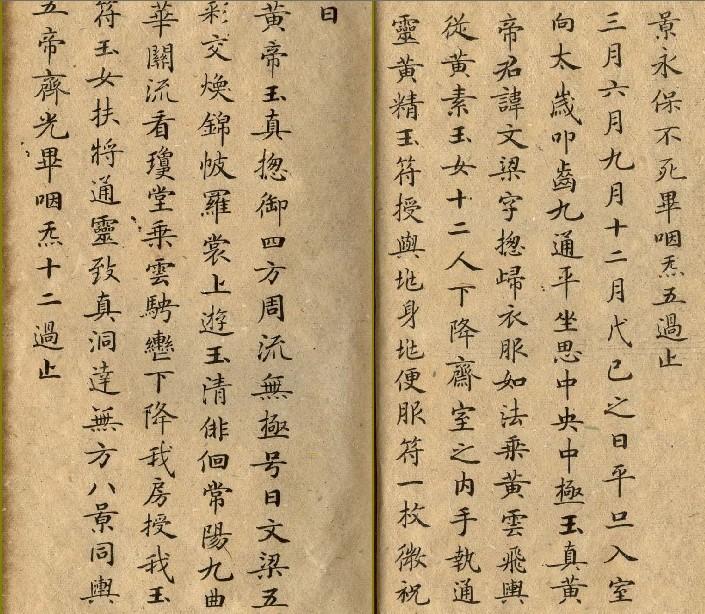 景永保不死畢咽炁五過止
三月六月九月十二月戊己之日平旦入室
向太歲叩齒九通平坐思中央中極玉真黄
帝君諱文梁字揔歸衣服如法乗黄雲飛輿
從黄素玉女十二人下降齋室之内手執通
靈黄精玉符授與地身地便服符一枚微祝
曰
黄帝玉真揔御四方周流無極号曰文梁五
彩交煥錦帔羅裳上遊玉清俳佪常陽九曲
華關流看瓊堂乗雲騁轡下降我房授我玉
符玉女扶將通靈致真洞達無方八景同輿
五帝齊光畢咽炁十二過止